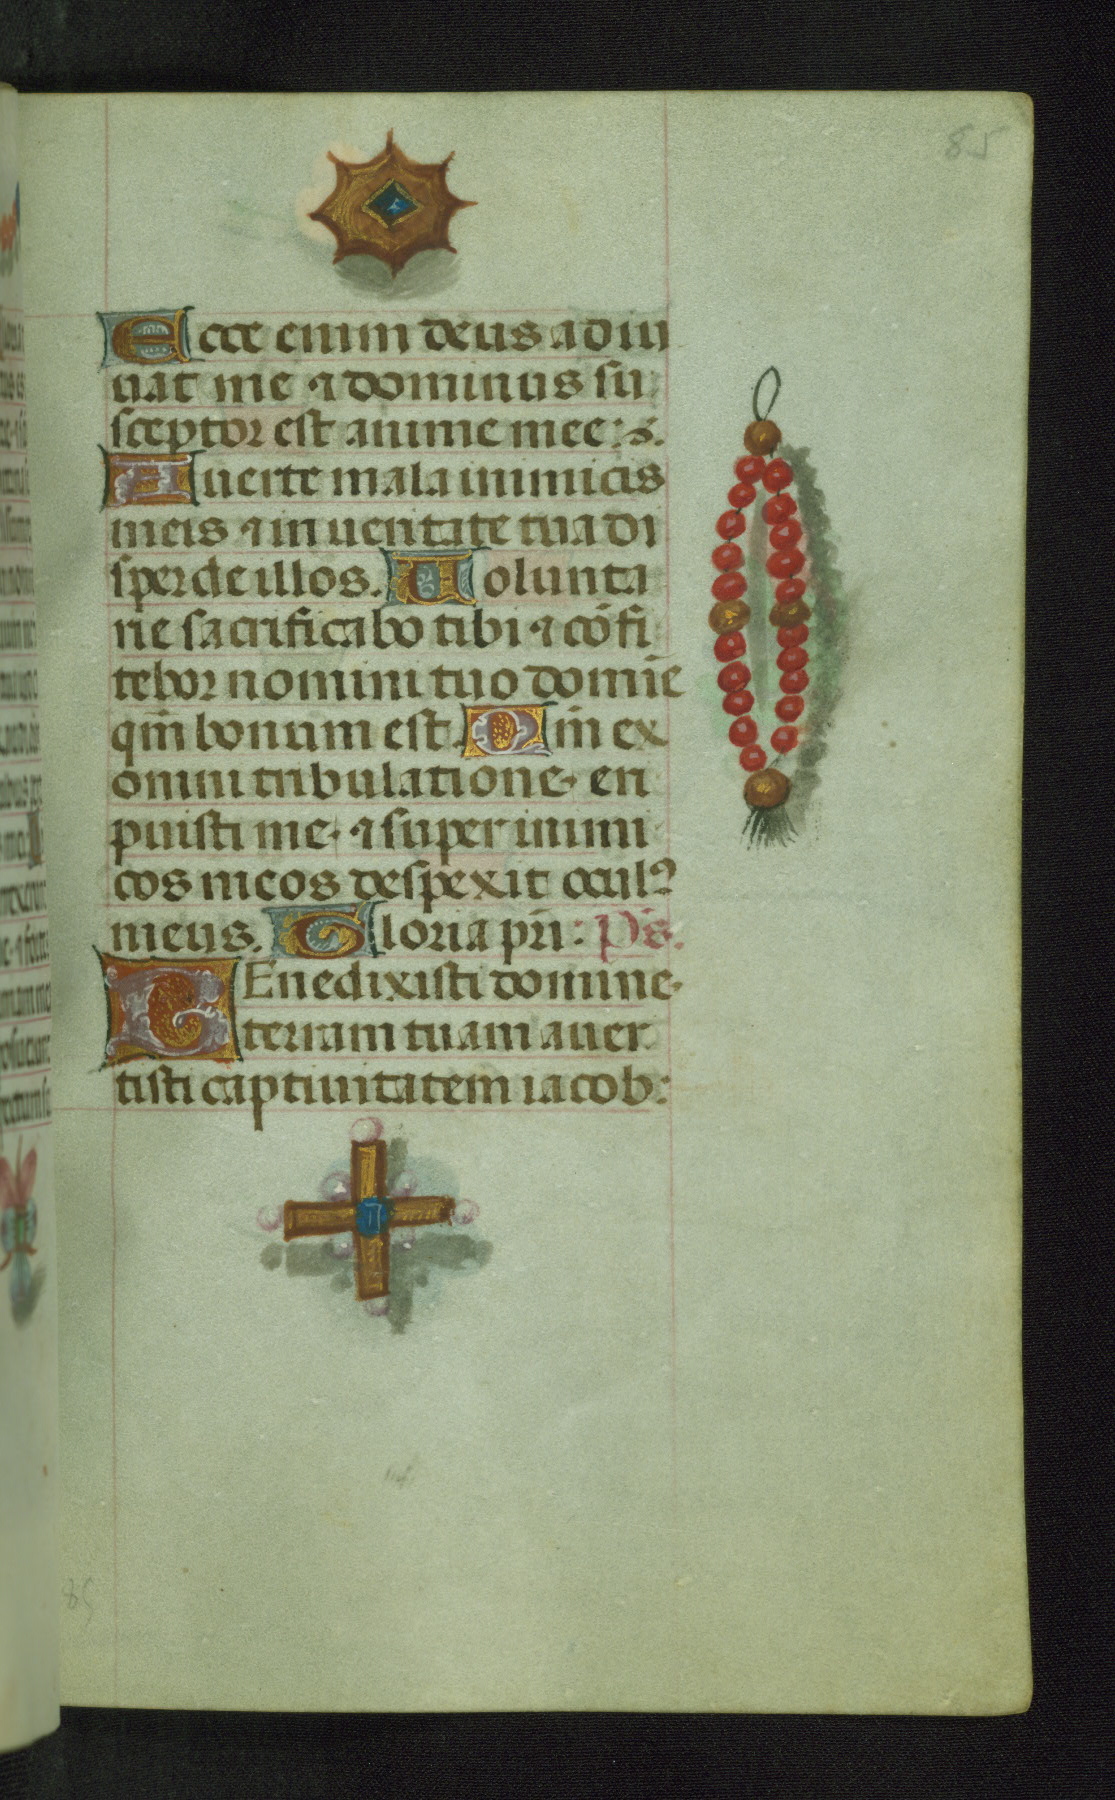 85
Ecce enim deus adiu
uat me ⁊ dominus su
sceptor est anime mee: s.
Auerte mala inimicis
meis ⁊ in ueritate tua di
sperde illos. Uolunta
rie sacrificabo tibi ⁊ cōfi
tebor nomini tuo domīe
qm̄ bonum est. Qm̄ ex
omni tribulatione· eri
puisti me· ⁊ super inimi
cos meos despexit oculꝰ
meus. Gloria pr̄i: Ps̄.
BEnedixisti domine·
terram tuam auer
tisti captiuitatem iacob:
85